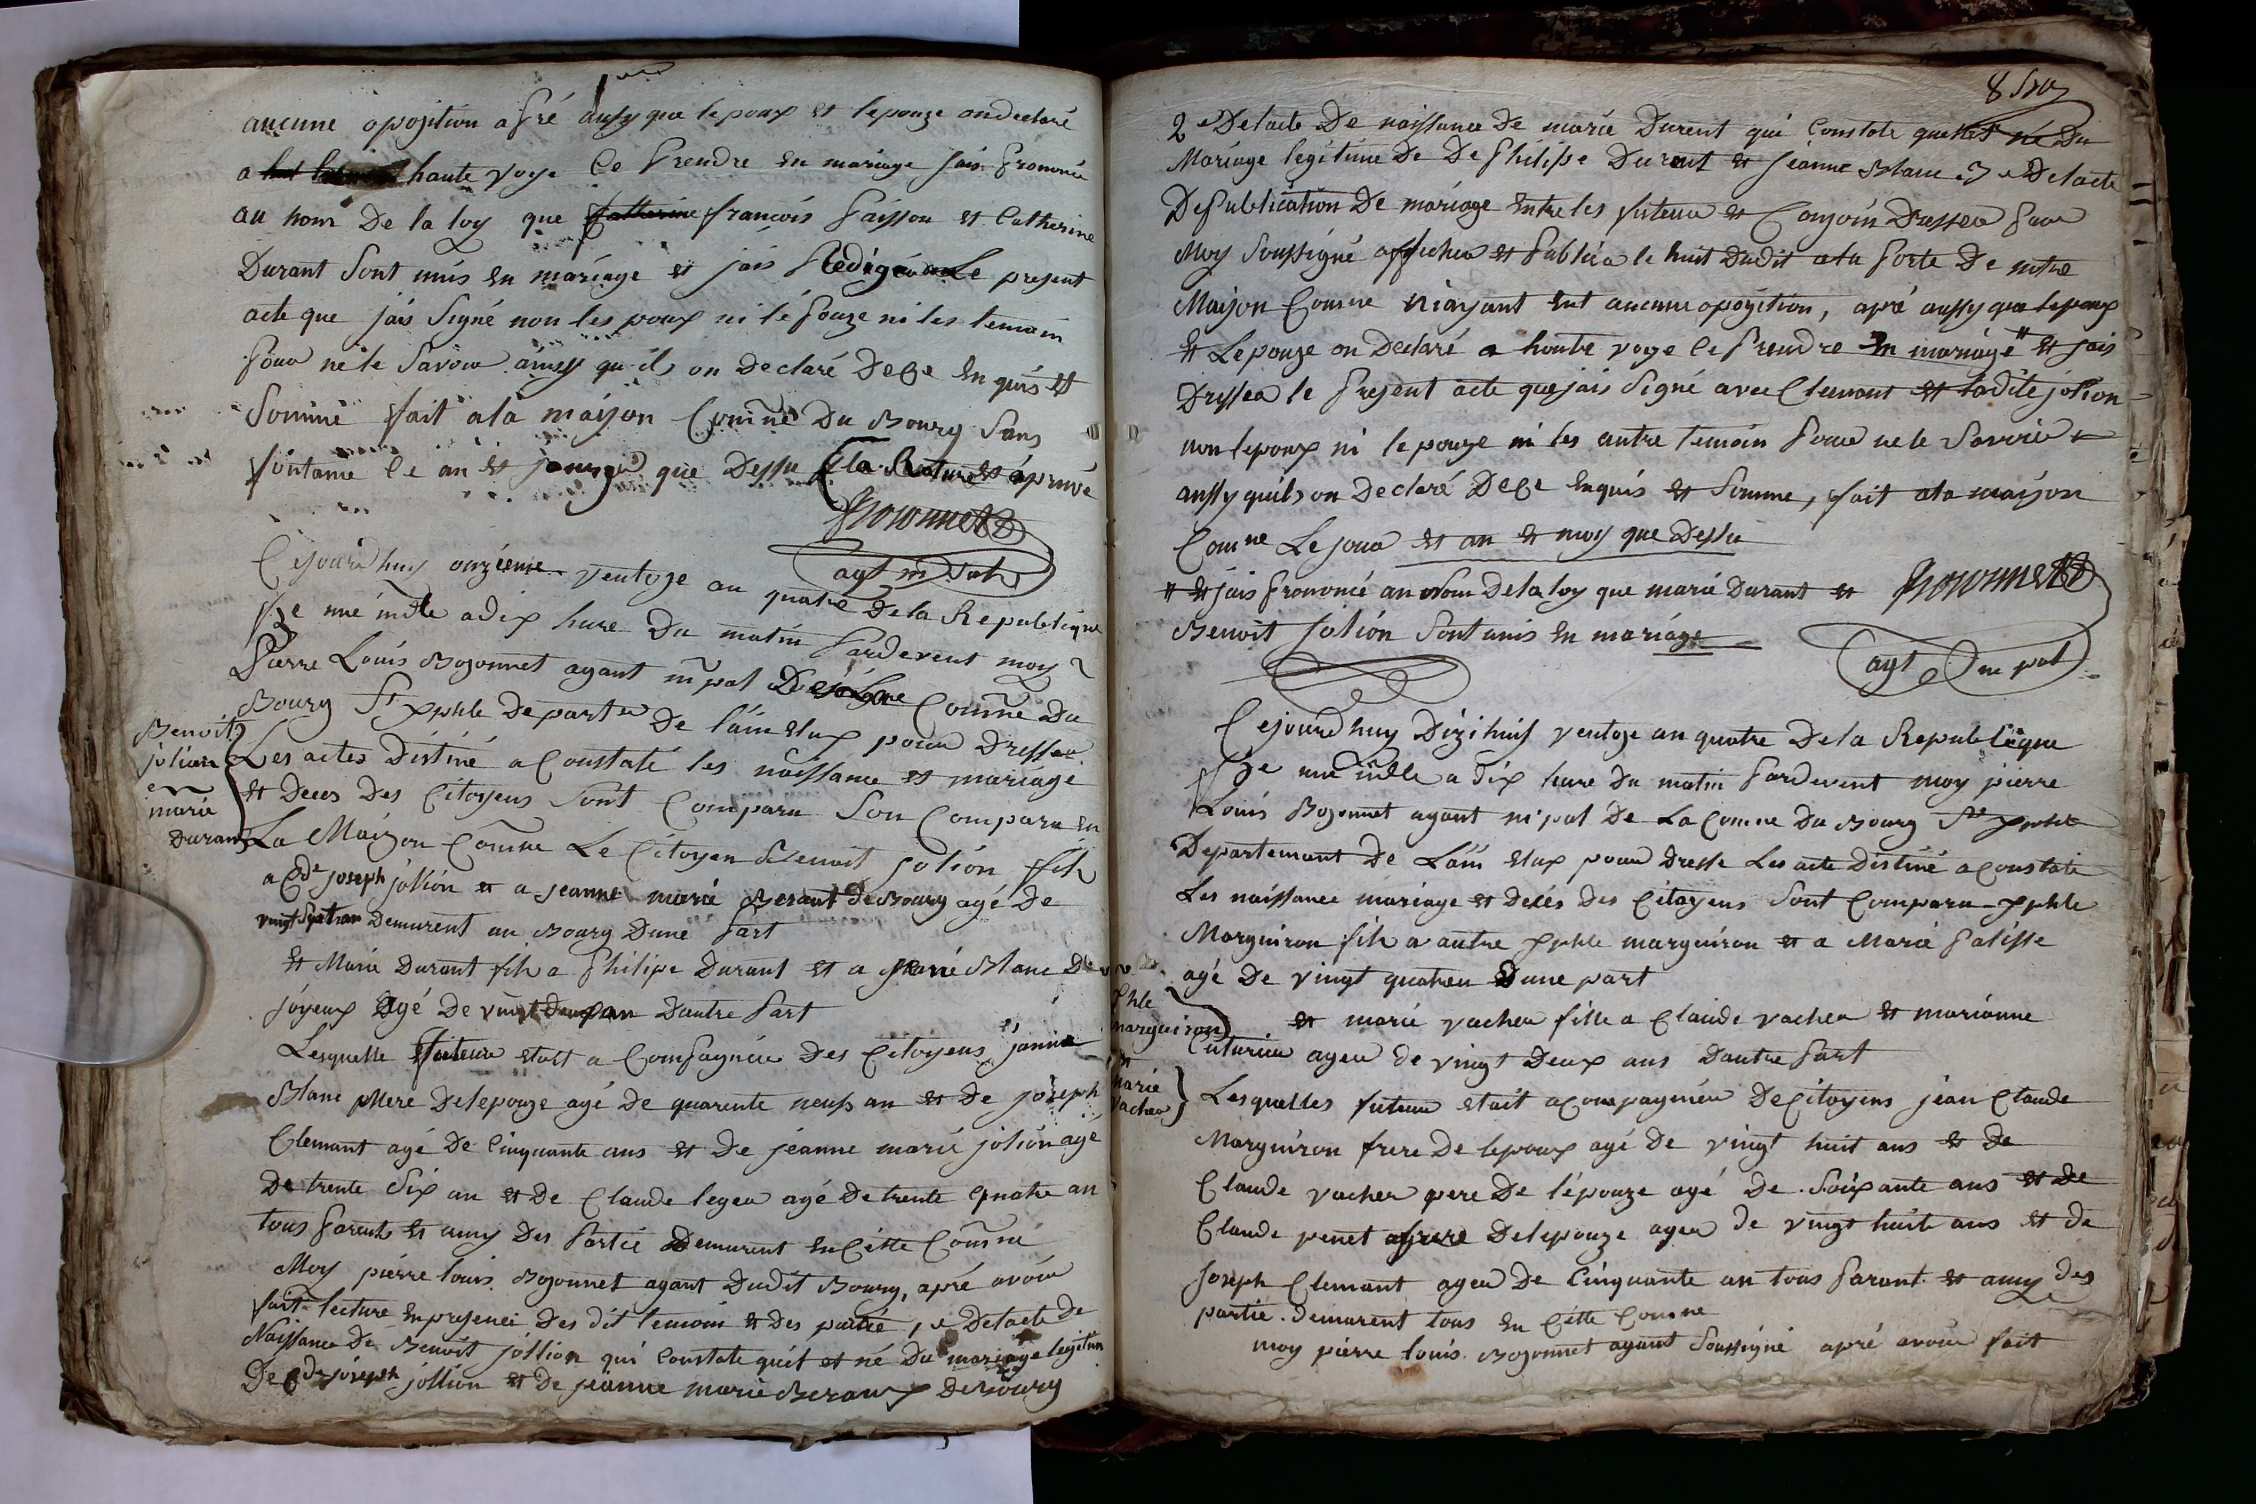 aucune opozition apré ausy que lepoux et lepouze on declaré
a haute voye ce prendre en mariage jais prononcé
au nom De la loy que francois paisson et Catherine
Durant sont unis en mariage et jais Redigé Le present
acte que jais signé non les poux ni lé pouze ni les temoin
pour ne le savoir ainsy qu-il on declaré De ce en quis et
sommé fait ala maison Comne Du Bourg sans
fontaine le an et jour que Dessu la Rature et apruvé
Bozonnet
agt m pal
Cejourd huy onzieme ventoze an quatre De la Republique
f se une indle adix hure Du matin pardevent moy
pierre Louis Bozonnet agant m pal De La Comne Du
Bourg St xpphle Departer De l'ain elux pour Dresser
Les actes Distiné a Constaté les naissance et mariage
et Deces Des Citoyens sont Comparu son Comparu en
La Maizon Comne Le Citoyen Benoit jolion fils
a Cde joseph jolion et a jeanne marie Beraut De Bourg agé de
vingt Demurent au Bourg Dune part
Benoit
jolion
en
marie
Durant
et Marie Durant fille a philipe Durant et a jeanne Blanc De
joyeux agé De vingt deux an Dautre part
Lesquelle futeur etoit a Compagnéer Des Citoyens jannie
Blanc Mere Delepouze agé de quarente neuf an et De joseph
Clemant agé De Cinquante ans et De jéanne marie jolion agé
De trente six an et De Claude leger agé De trente quatre an
tous parent et amy Des partie Demurent en Cette Comne
Moy pierre louis Bozonnet agant Dudit Bourg, apré avoir
fait lecture en presence Des dit temoin et des partié, 1 e Delacte De
Naissance De Benoit jollion qui Constate quil et né Du mariage legitim
De Cde joseph jollion et De jéanne marie Beraux De Bourg
8
2 e Delacte De naissance De marie Durent qui Constate quelle et né Du
Mariage legitime De De philippe Durent et jéanne Blanc. 3 e Delacte
De publication De mariage entre les futeur et Conjoin Dresser par
Moy soussigné afficher et publier le huit Dudit ala porte De notre
Maizon Comne niayant eut aucune opozition, apré aussy que lepoux
et Lepouze on Declaré a hautre voye ce prendre en mariage # et jais
Dresser le present acte que jais signé avec Clemant et ladite jolion
non lepoux ni lepouze ni les autre temoin pour ne le savoir
aussy quils on Declaré De ce enquis et sommé, fait ala maizon
Comne Le jour et an et moy que Dessu
# et jais prononcé au nom De la loy que marie Durant et
Benoit jolion sont unis en mariage
Bozonnet
agt m pal
Cejourd huy Dizihuis ventoze an quatre De la Republique
f se une indle a Dix hure Du matin pardevent moy pierre
Louis Bozonnet agant m pal De La Comne Du Bourg St xpphle
Departemant De L'ain elux pour Dresse Les acte Distiné a Constaté
Les naissance mariage et decés Des Citoyens sont Comparu xpphle
Marguiron fils a autre xpphle marguiron et a Marie palisse
agé De vingt quatre Dune part
phle
marguiron
en
marie
vacher
et marie vacher fille a Claude vacher et marianne
Cuturier ager de vingt Deux ans Dautre part
Lesquelles futeur etait acompagnéer De Citoyens jean Claude
Marguiron frere De lepoux agé De vingt huit ans et De
Claude vacher pere De l'épouze agé De soixante ans et De
Claude penet Delepouze ager de vingt huit ans et de
joseph Clemant ager De Cinquante an tous parant et amy des
partie Demurent tous en Cette Comne
moy pierre louis Bozonnet agant soussigné apré avoir fait